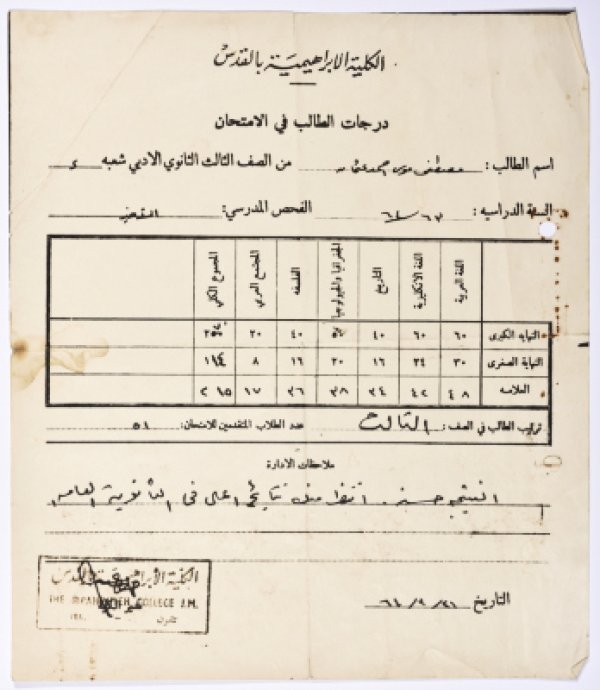 الكلية الابراهيمية بالقدس
درجات الطالب في الامتحان
اسم الطالب : مصطفى موسى من الصف الثالث الثانوي الادبي شعبه
السنة الدراسيه : ٦٤/٦٣ الفحص المدرسي :
اللغة العربية اللغة الانكليزية التاريخ الجغرافيا والجيولوجيا الفلسفه المجتمع العربي المجموع الكلي
النهايه الكبرى ٦٠ ٦٠ ٤٠ ٤٠ ٢٠
النهاية الصغرى ٣٠ ٢٤ ١٦ ٢٠ ١٦ ٨ ١١٤
العلامه ٤٨ ٤٢ ٣٤ ٣٨ ٣٦ ١٧ ٢١٥
ترتيب الطالب في الصف : الثالث عدد الطلاب المتقدمين للامتحان : ٥٤
ملاحظات الادارة
النتيجة حسنة . انتظر منك نتائج اعلى في الثانوية العامه
التاريخ
الكلية الابراهيمية القدس
THE IBRAHIMIEH COLLEGE J.M.
تلفون